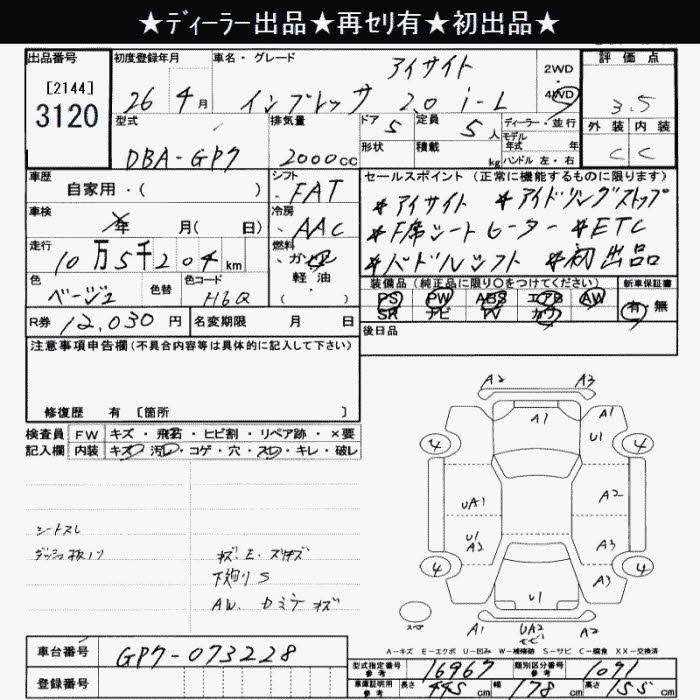 ★ディーラー出品★再セリ有★初出品★
出品番号 初度登録年月 車名・グレード アイサイト 2WD 評価点
[2144] 26年 4月 インプレッサ 2.0 i-L 4WD 3.5
3120 型式 排気量 ドア 5 定員 5人 ディーラー・並行 外装 内装
DBA-GP7 2000cc 形状 積載 kg モデル年式 年 C C
ハンドル 左・右
車歴 シフト セールスポイント (正常に機能するものに限ります)
自家用・( ) FAT *アイサイト *アイドリングストップ
車検 年 月( 日) 冷房 AAC *F席シートヒーター *ETC
走行 10万5千204km 燃料 ガソリン *パドルシフト *初出品
色 ベージュ 色替 色コード H6Q 軽油 ( ・ )
装備品 (純正品に限り○をつけてください) 新車保証書
PS PW ABS エアB AW 有・無
SR ナビ TV カワ
R券 12,030円 名変期限 月 日 後日品
注意事項申告欄 (不具合内容等は具体的に記入して下さい)
修復歴 有 [箇所 ]
検査員 FW キズ・飛石・ヒビ割・リペア跡・×要
記入欄 内装 キズ・汚レ・コゲ・穴・スレ・キレ・破レ
シートスレ
キズ.E.スリキズ
下廻りS
A2 A3
A1 A1
4 U1 4
UA1 A2
U1 A3
A2
4 A3 4
U1
スペア A1 UA2 A2
A-キズ E-エクボ U-凹み W-補修跡 S-サビ C-腐食 XX-交換済
車台番号 GP7-073228
型式指定番号 参考 16967 類別区分番号 参考 1091
登録番号 車庫証明用 参考 長さ 445cm 幅 178cm 高さ 155cm